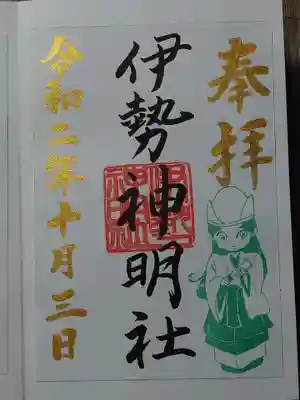 奉拝
伊勢神明社
令和二年十月三日